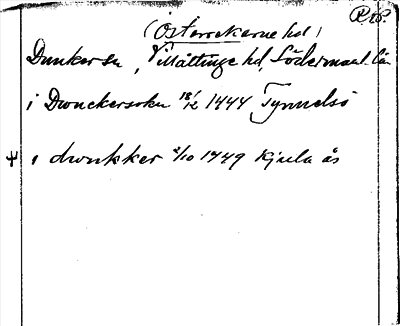 (Österrekarne hd)
Dunker sn, Villåttinge hd, Södermanl. län
i Dwnckersokn 18/12 1444 Tynnelsö
i dwnkker 2/10 1449 Kjula ås